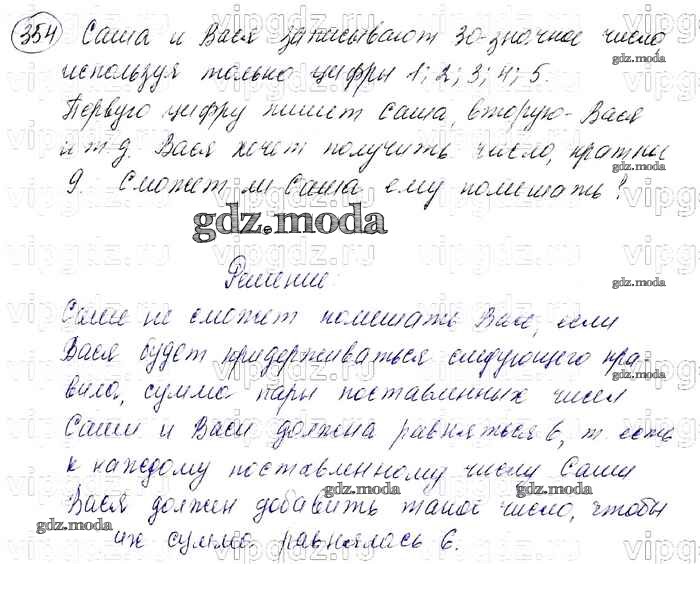 354 Саша и Вася записывают 30-значное число,
используя только цифры 1; 2; 3; 4; 5.
Первую цифру пишет Саша, вторую - Вася
и т.д. Вася хочет получить число, кратное
9. Сможет ли Саша ему помешать?
gdz.moda
Решение:
Саша не сможет помешать Васе, если
Вася будет придерживаться следующего пра-
вила, сумма пары поставленных чисел
Саши и Васи должна равняться 6, т. есть
к каждому поставленному числу Саши
Вася должен добавить такое число, чтобы
их сумма равнялась 6.